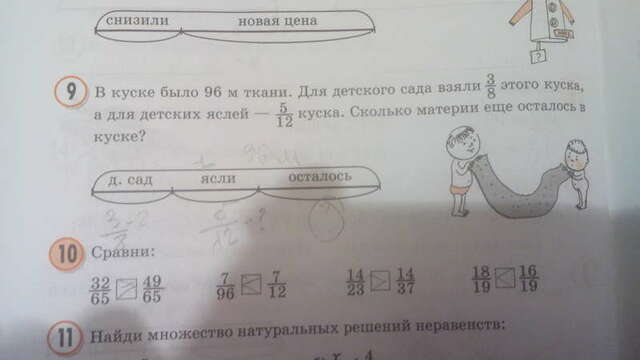 снизили новая цена
?
9 В куске было 96 м ткани. Для детского сада взяли 3/8 этого куска,
а для детских яслей — 5/12 куска. Сколько материи еще осталось в
куске?
96 м
д. сад ясли осталось
3/8 - ? 5/12 - ?
10 Сравни:
32/65 > 49/65 7/96 < 7/12 14/23 > 14/37 18/19 < 16/19
11 Найди множество натуральных решений неравенств: